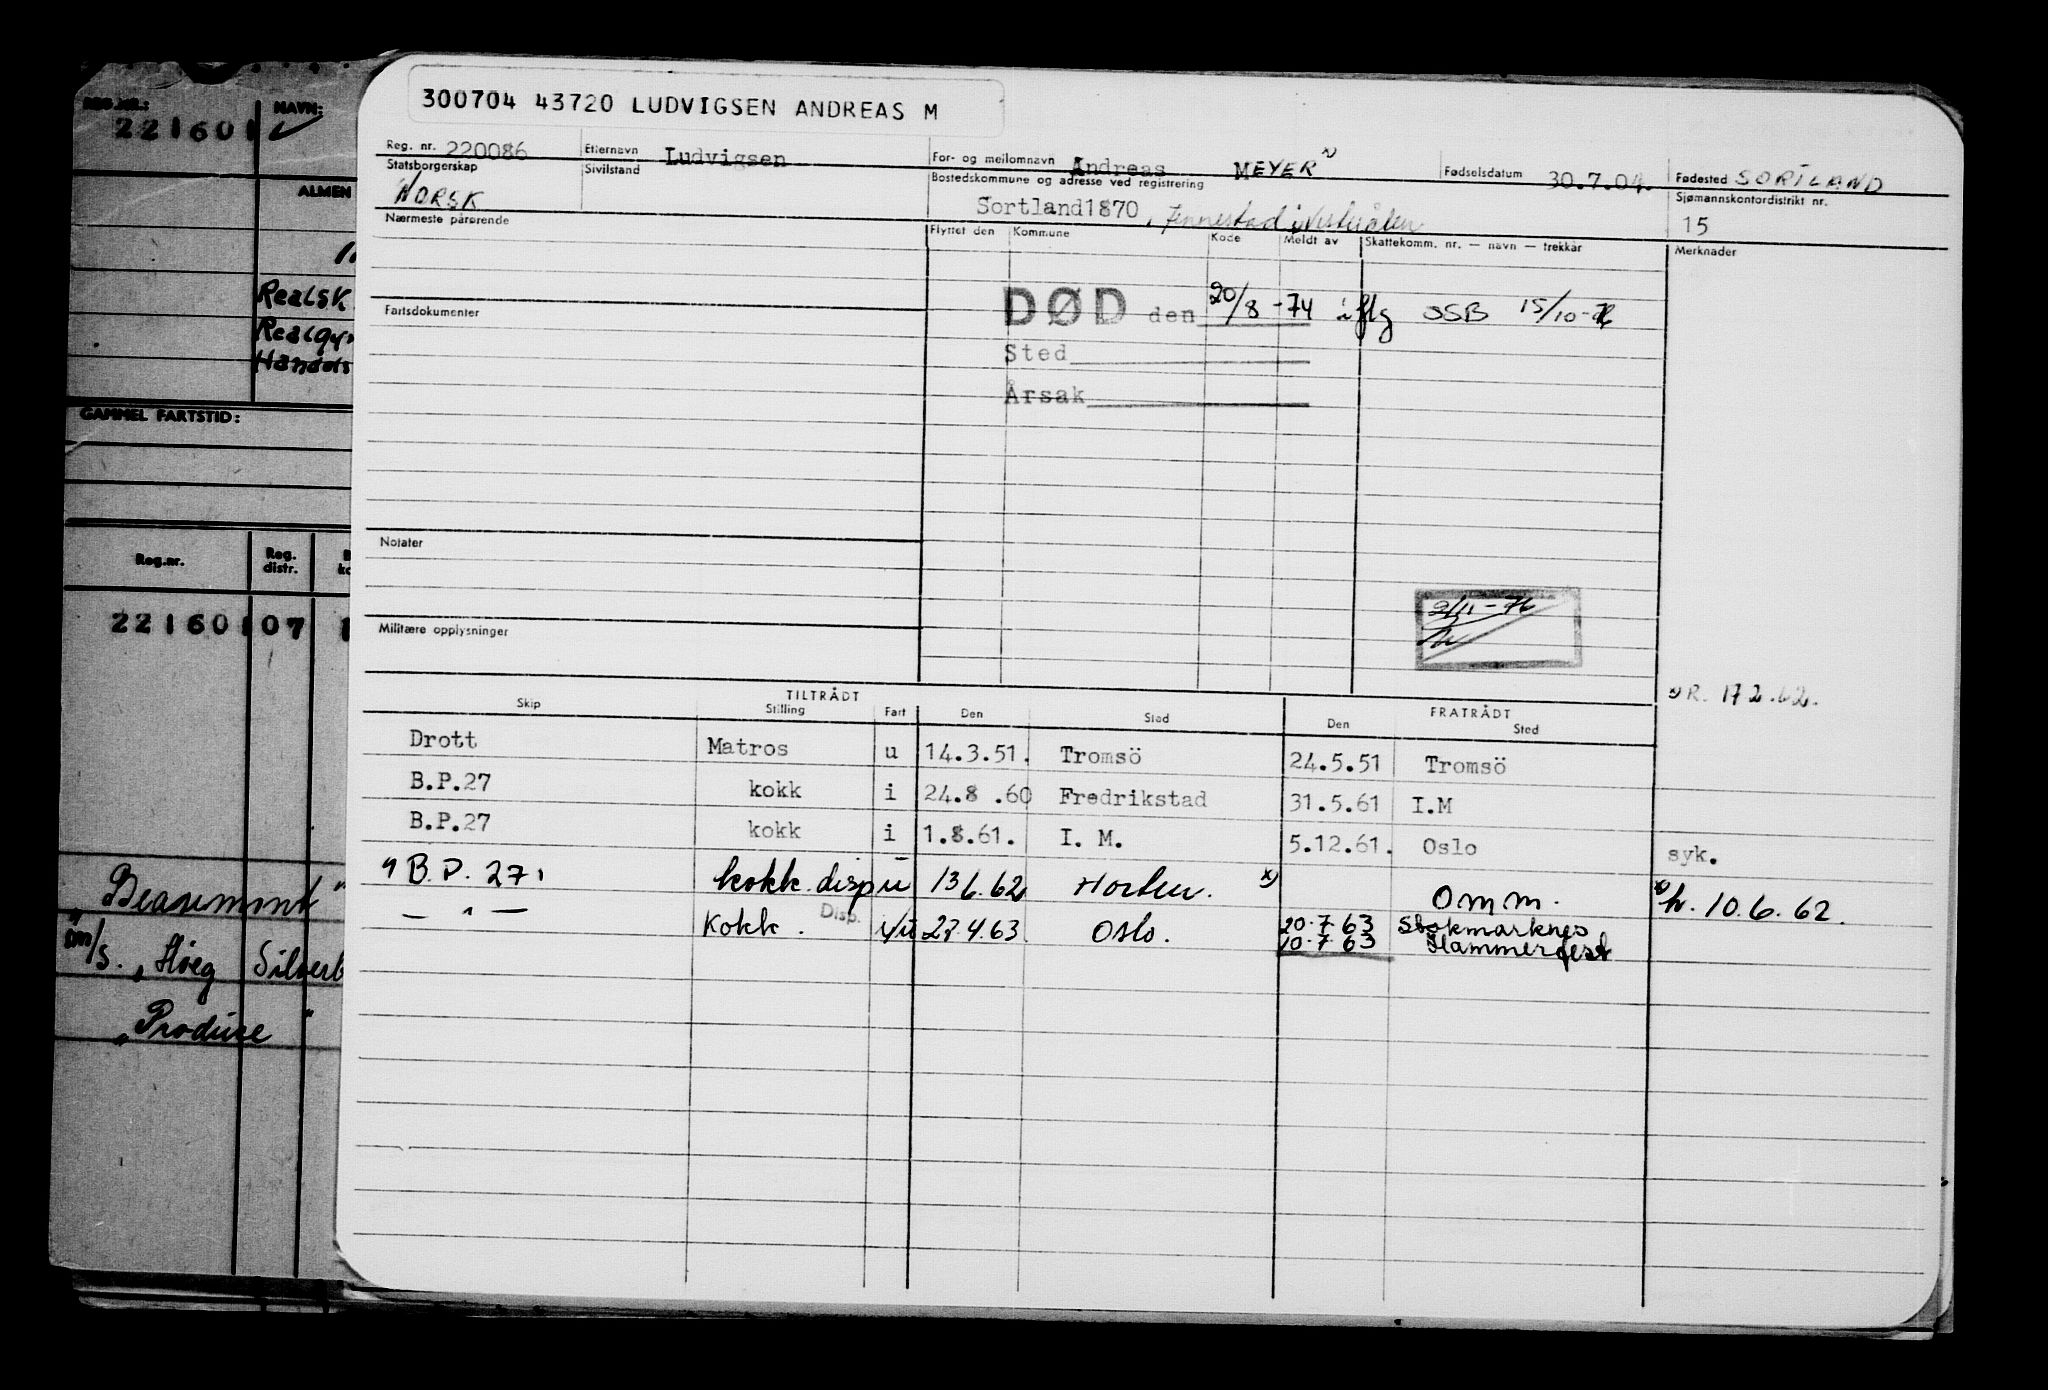 300704 43720 LUDVIGSEN ANDREAS M
Reg. nr. 220086 Etternavn Ludvigsen For- og mellomnavn Andreas MEYER x) Fødselsdatum 30.7.04. Fødested SORTLAND
Statsborgerskap NORSK Sivilstand Bostedskommune og adresse ved registrering Sortland 1870, Jennestad i Vesterålen Sjømannskontordistrikt nr. 15
Nærmeste pårørende Flyttet den Kommune Kode Meldt av Skattekomm. nr. — navn — trekkår Merknader
DØD den 20/8 -74 iflg OSB 15/10-
Fartsdokumenter
Sted
Årsak
Notater
2/11-76
Militære opplysninger
x) R. 17 2.62.
TILTRÅDT FRATRÅDT
Skip Stilling Fart Den Sted Den Sted
Drott Matros u 14.3.51. Tromsö 24.5.51 Tromsö
B.P.27 kokk i 24.8 .60 Fredrikstad 31.5.61 I.M
B.P.27 kokk i 1.8.61. I. M. 5.12.61. Oslo syk.
" B.P. 27" kokk disp u 13 6.62 Horten. x) Omm. x) h. 10.6.62.
— " — Kokk. Disp. i/u 27.4.63. Oslo. 20.7.63 Stokmarknes
10.7.63 Hammerfest
REG.NR.: NAVN:
221601
ALMEN
Realsk
Realgy
Handels
GAMMEL FARTSTID:
Reg.nr. Reg. distr.
221601 07 1
"Beaumont"
m/s. "Høeg Silver
"Produce"